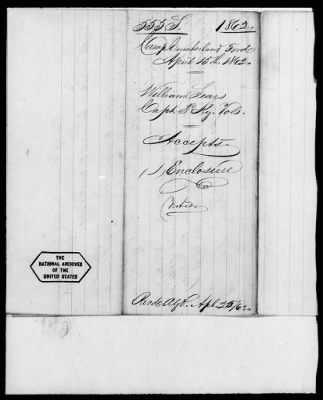 555 S. 1862.
Camp Cumberland Ford
April 15th 1862.
William Sears
Capt. Ky. Vols.
Accepts
(1) Enclosure
THE
NATIONAL ARCHIVES
OF THE
UNITED STATES
Recd. A.G.O. Apl 25/62